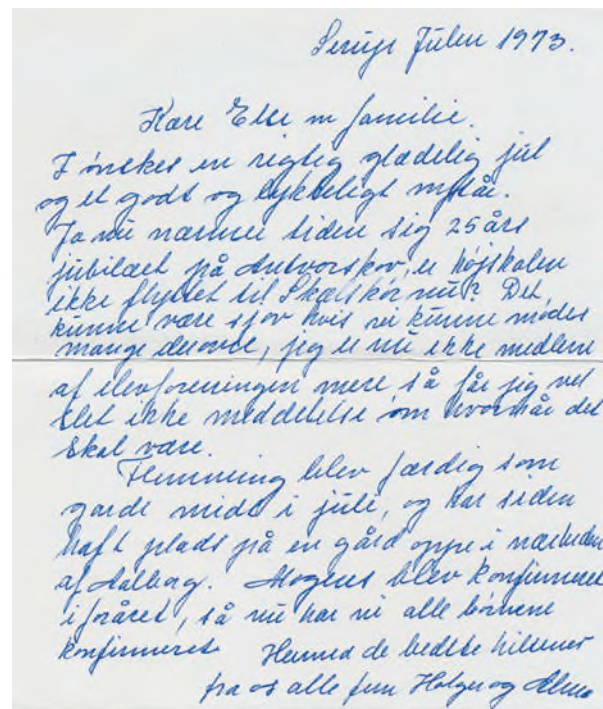 Julen 1973.
Kære Else m familie.
I ønskes en rigtig glædelig jul
og et godt og lykkeligt nytår.
Ja nu nærmer tiden sig 25 års
jubilæet på Antvorskov, er højskolen
ikke flyttet til Skælskør nu? Det,
kunne være sjov hvis vi kunne mødes
mange derovre, jeg er nu ikke medlem
af elevforeningen mere, så får jeg vel
slet ikke meddelelse om hvornår det
skal være.
Flemming blev færdig som
garde midt i juli, og har siden
haft plads på en gård oppe i nærheden
af Aalborg. Mogens blev konfirmeret
i foråret, så nu har vi alle børnene
konfirmeret. Hermed de bedste hilsener
fra os alle fem Holger og Alma